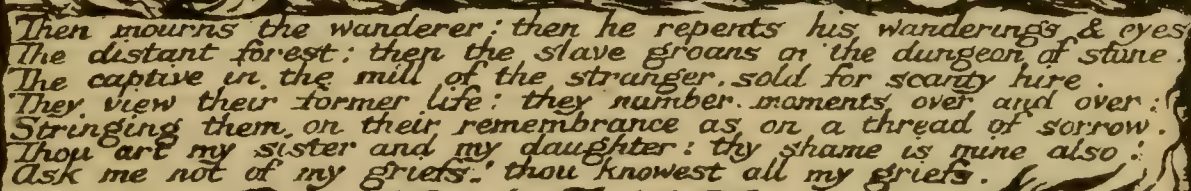 Then mourns the wanderer: then he repents his wanderings & eyes
The distant forest: then the slave groans in the dungeon of stone.
The captive in the mill of the stranger, sold for scanty hire.
They view their former life: they number moments over and over:
Stringing them on their remembrance as on a thread of sorrow.
Thou art my sister and my daughter: thy shame is mine also:
Ask me not of my griefs: thou knowest all my griefs.